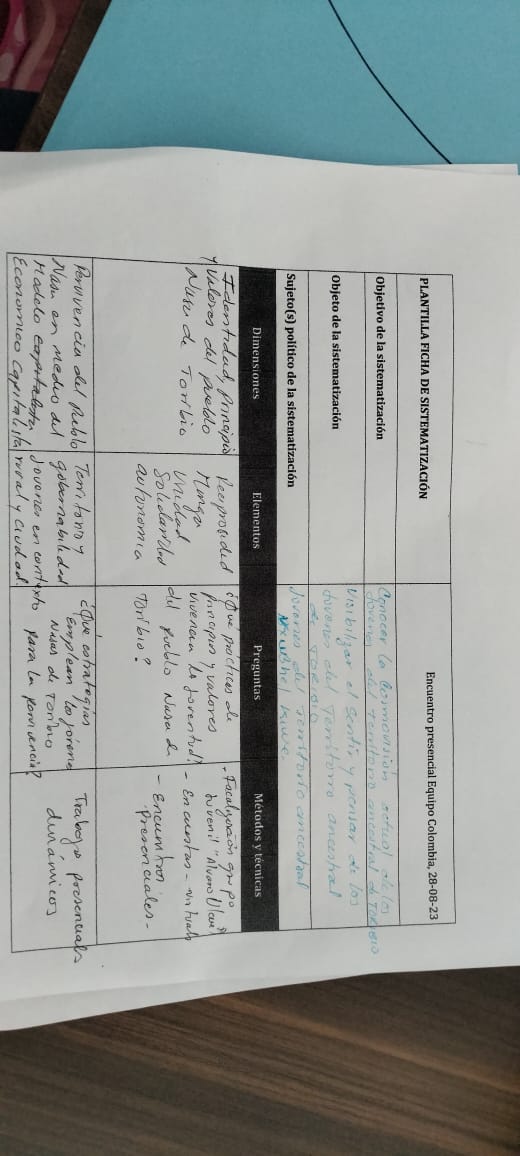 PLANTILLA FICHA DE SISTEMATIZACIÓN
Encuentro presencial Equipo Colombia, 28-08-23
Objetivo de la sistematización
Conocer la Cosmovisión actual de los
Jovenes del territorio ancestral de TORIBIO
Objeto de la sistematización
Visibilizar el sentir y pensar de los
Jovenes del Territorio ancestral
de TORIBIO
Sujeto(s) político de la sistematización
Jovenes del Territorio ancestral
Kiwe
Dimensiones
Elementos
Preguntas
Métodos y técnicas
Identidad, principio
y valores del pueblo
Nasa de Toribio
Reciprosidad
Minga
Unidad
Solidaridad
autonomia
¿Qué prácticas de
principio y valores
vivencia la Joventud
del pueblo Nasa de
Toribio?
- Focalización grupo
Juvenil Alvaro Ulcue
- Encuestas - virtuales
- Encuentros
presenciales -
Pervivencia del Pueblo
Nasa en medio del
Modelo capitalista,
Economico Capitalista
Territorio y
gobernabilidad
Jovenes en contexto
rural y ciudad.
¿Qué estrategias
emplean los jóvenes
Nasas de Toribio
para la pervivencia?
Trabajo presenciales
dinámicos